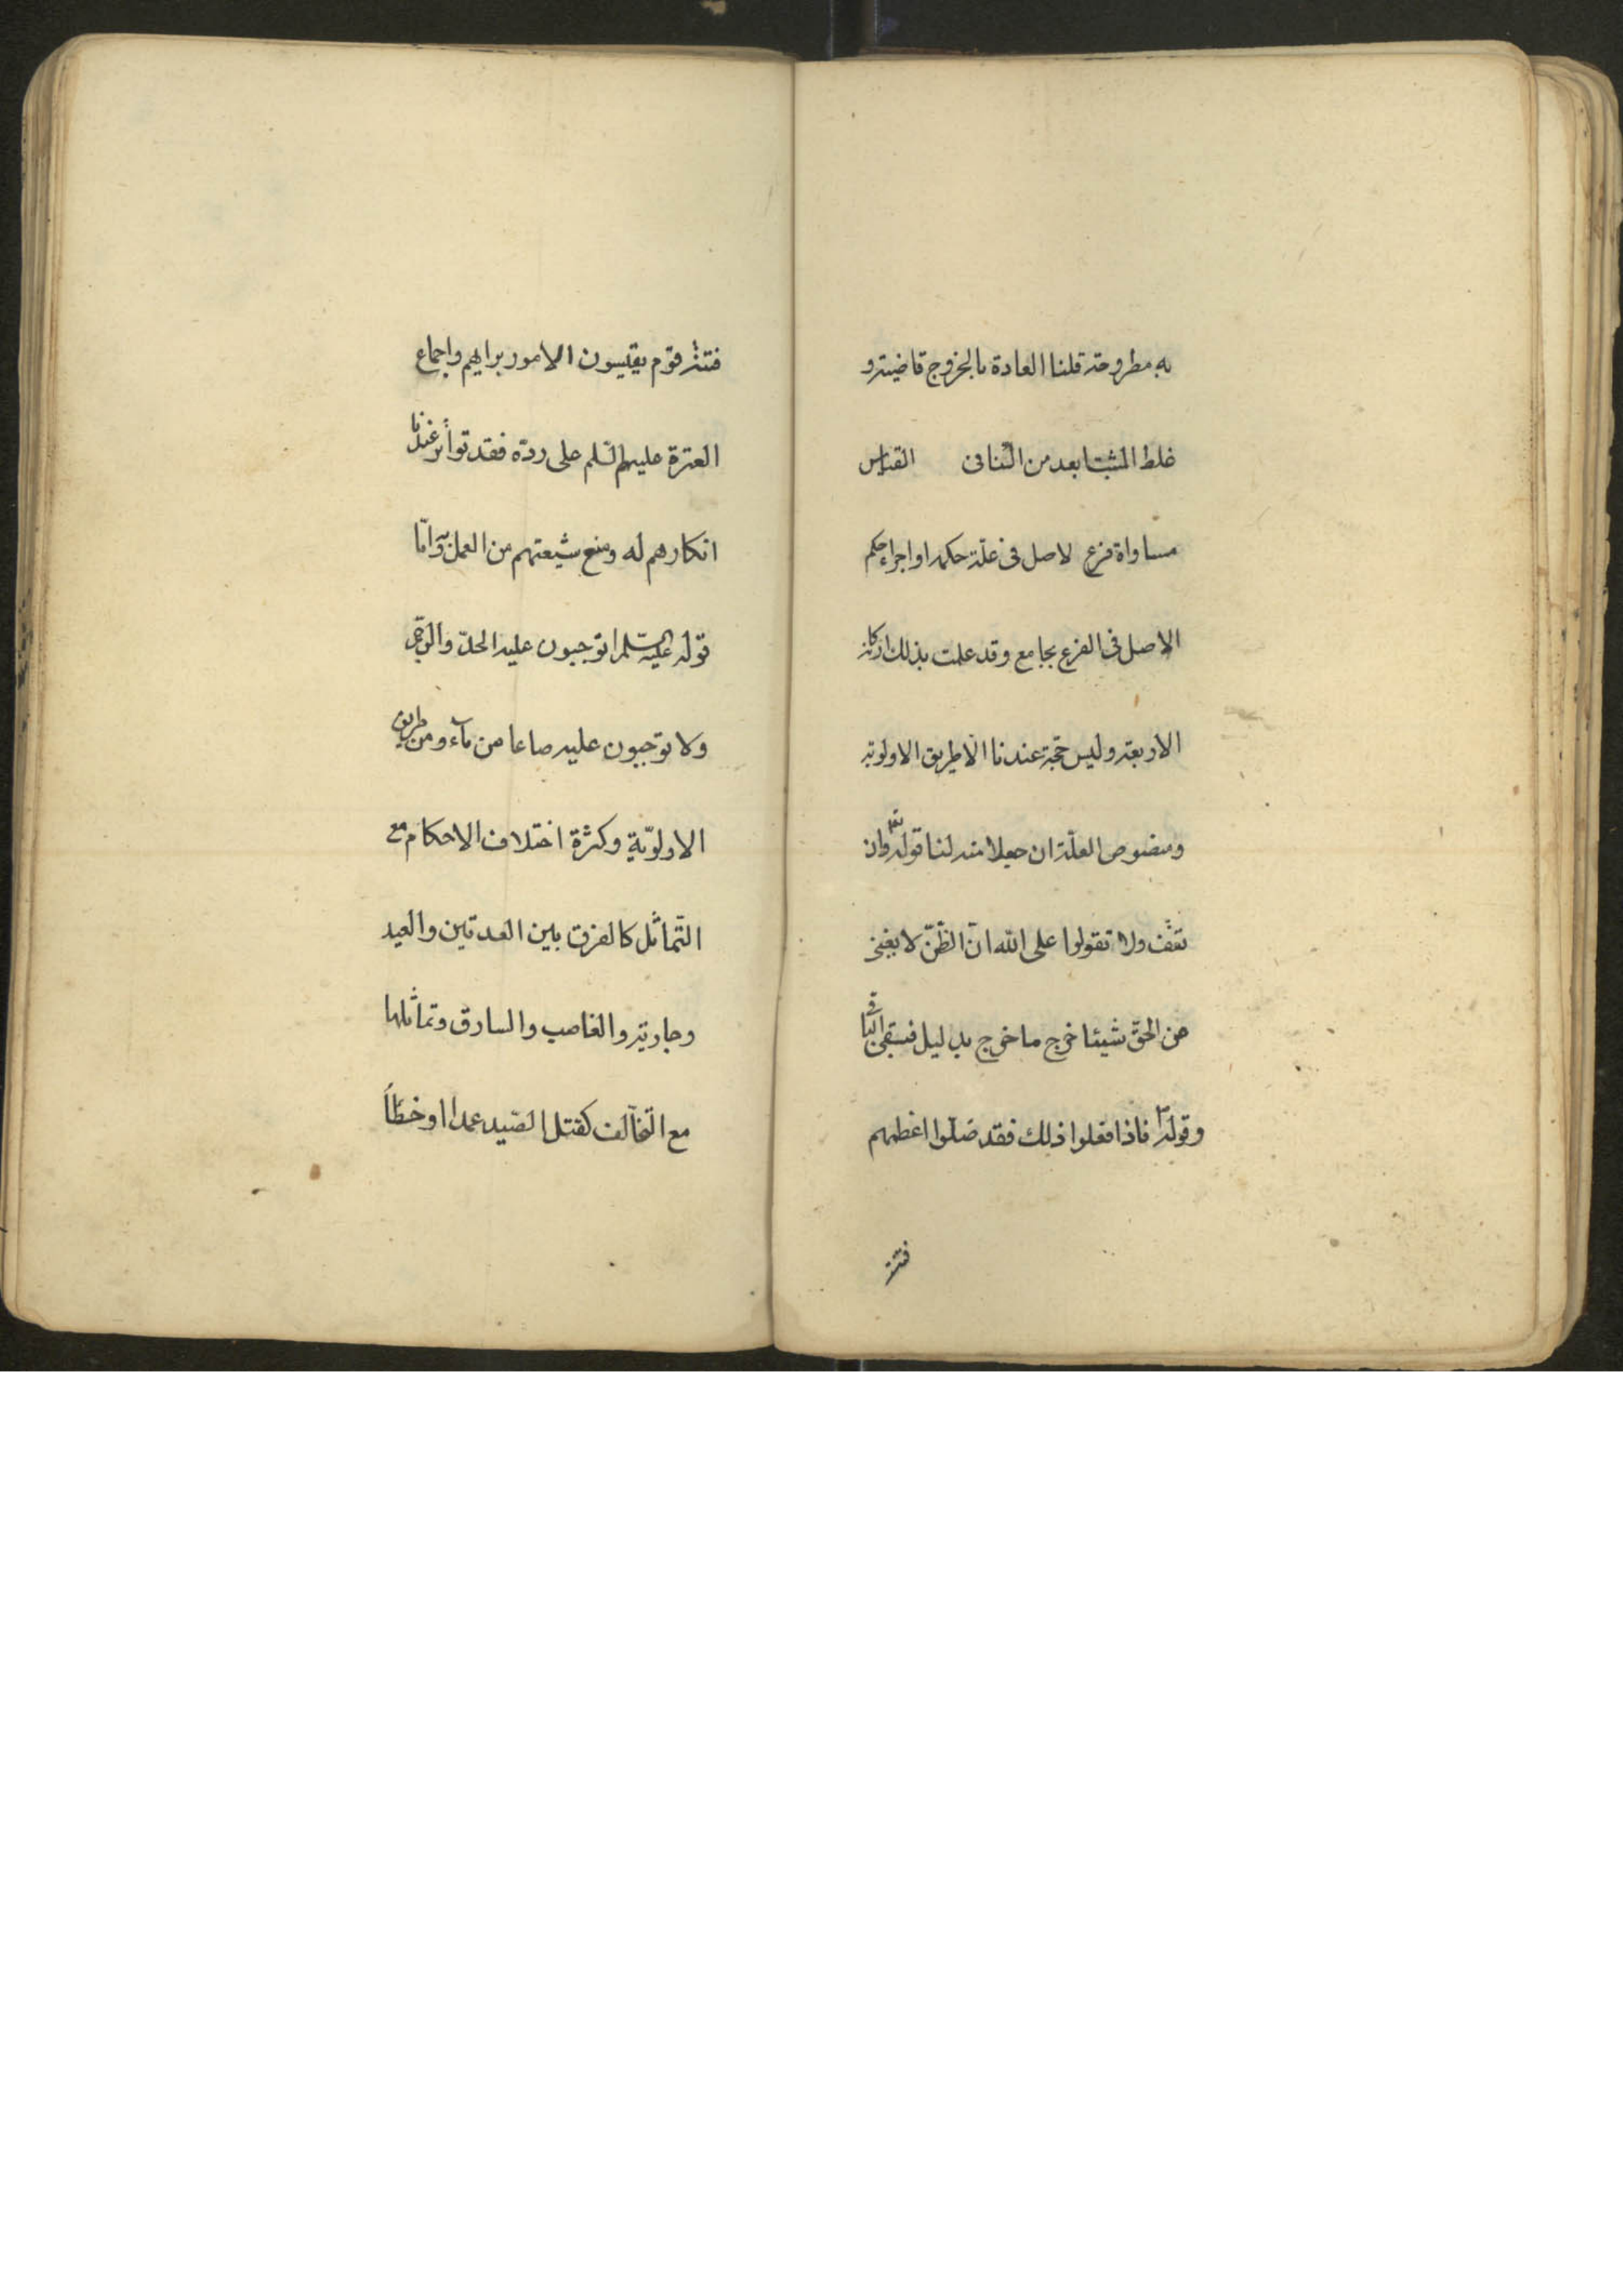 به مطروحة قلنا العادة بالخروج قاضية و
غلط المثبت ابعد من النافى القياس
مساواة فرع لاصل فى علة حكمه او اجراء حكم
الاصل فى الفرع بجامع وقد علمت بذلك اركانه
الاربعة وليس حجة عندنا الا طريق الاولوية
ومنصوص العلة ان جعلا منه لنا قوله تعا وان
تقف ولا تقولوا على الله ان الظنّ لا يغنى
من الحقّ شيئا خرج ما خرج بدليل فيبقى الباقى
وقوله فاذا فعلوا ذلك فقد ضلّوا اعظمهم
فتنة
فتنة قوم يقيسون الامور برايهم واجماع
العترة عليهم السّلم على ردّه فقد تواتر عندنا
انكارهم له ومنع شيعتهم من العمل به وامّا
قوله عليه السّلم اتوجبون عليه الحدّ والرّجم
ولا توجبون عليه صاعا من ماء فمن طريق
الاولوّية وكثرة اختلاف الاحكام مع
التّماثل كالفرق بين العدتين والعبد
وجاريته والغاصب والسارق وتماثلها
مع التّخالف كقتل الصّيد عمدا او خطأً